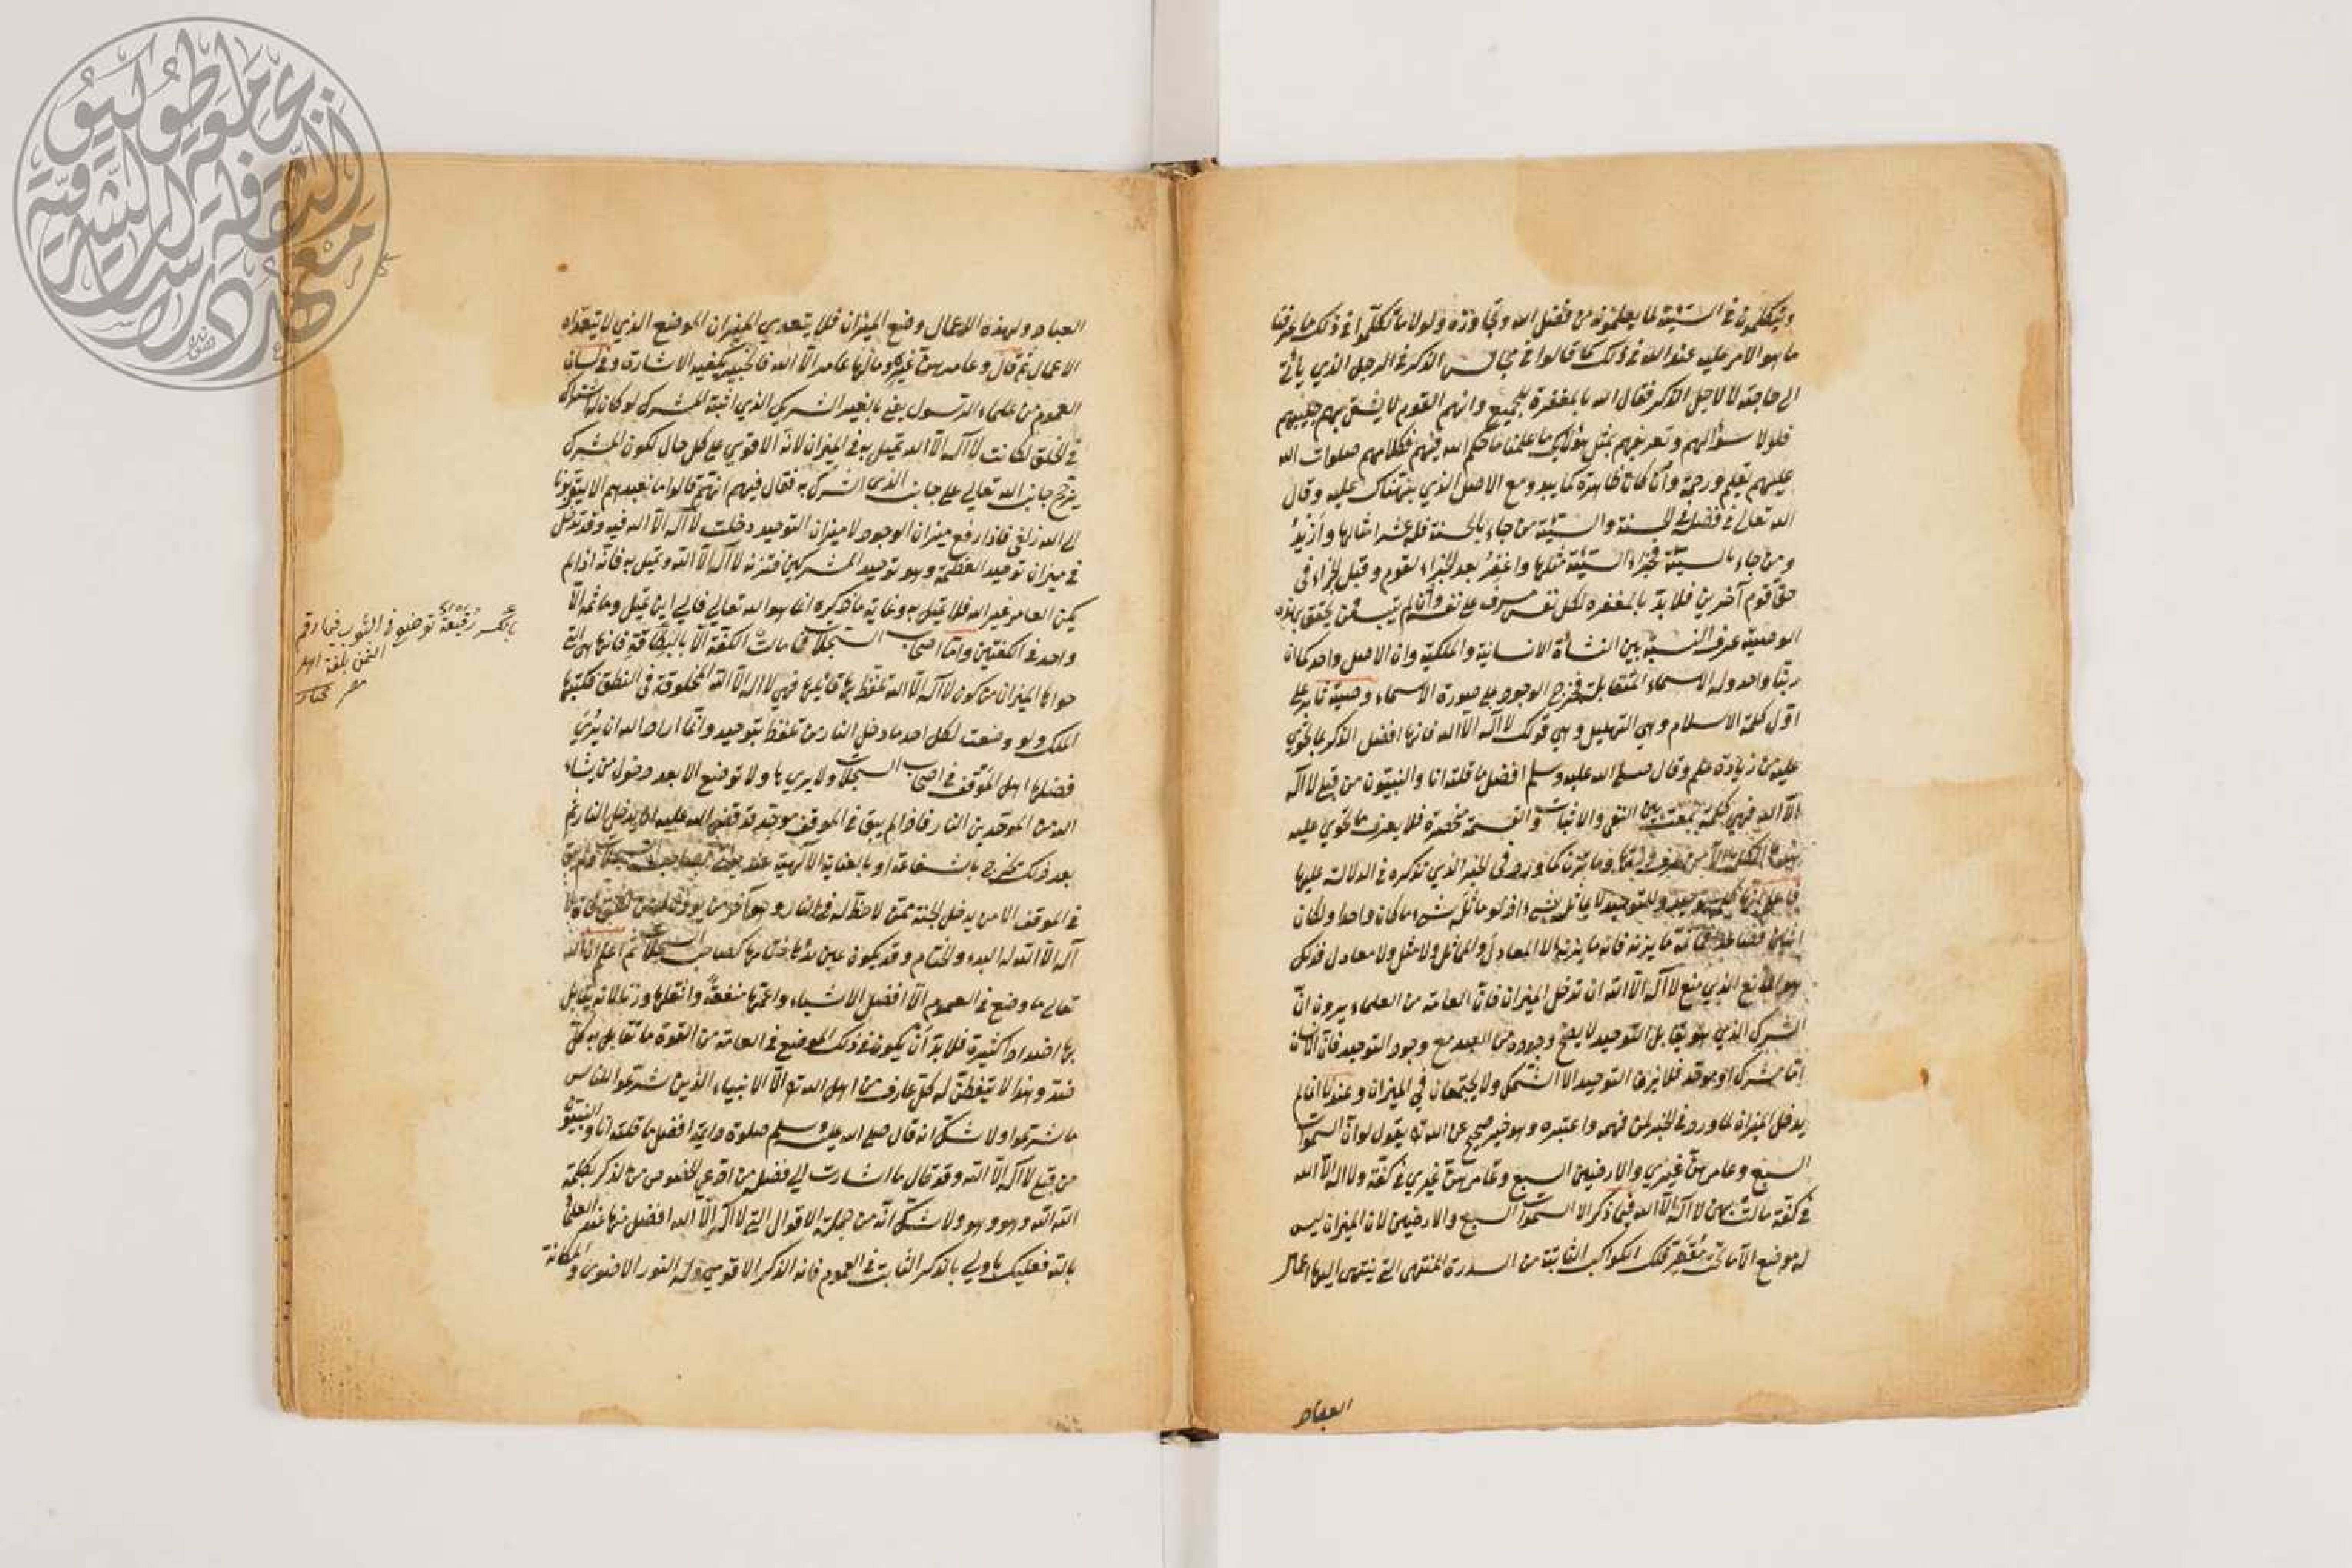 ويتكلمون في السيئة لما يعلمونه من فضل الله وتجاوزه ولولا ما تكلموا في ذلك ما عرفنا
ما هو الامر عليه عند الله في ذلك كما قالوا في مجالس الذكر في الرجل الذي يأتي
الى حاجته لا لاجل الذكر فقال الله بالمغفرة للجميع وانهم القوم لا يشقى بهم جليسهم
فلولا سؤالهم وتعريفهم بمثل هؤلاء ما علمنا ما حكم الله فيهم فكلامهم صلوات الله
عليهم تعليم ورحمة وان كان ظاهره كما يبدو مع الاصل الذي نبهتك عليه وقال
الله تعالى في فضل الحسنة والسيئة من جاء بالحسنة فله عشر امثالها وأزيد
ومن جاء بالسيئة فجزاء السيئة مثلها واغفر بعد الجزاء لقوم وقبل الجزاء في
حق قوم آخرين فلا بد بالمغفرة لكل نفس مسرف على نفسه وان لم يتب فمن تحقق بهذه
الوصية عرف النسبة بين النشأة الانسانية والملكية وان الاصل واحد كما ان
ربنا واحد وله الاسماء المتقابلة فخرج الوجود على صورة الاسماء وصية ثابر على
اول كلمة الاسلام وهي التهليل وهي قولك لا اله الا الله فانها افضل الذكر بما تحوي
عليه من زيادة علم وقال صلى الله عليه وسلم افضل ما قلته انا والنبيون من قبلي لا اله
الا الله فهي كلمة جمعت بين النفي والاثبات والقسمة منحصرة فلا يعرف ما تحوي عليه
هذه الكلمة الا من عرف وزنها وما تزن كما ورد في الخبر الذي نذكره في الدلالة عليها
فاعلم انها كلمة توحيد والتوحيد لا يماثله شيء اذ لو ماثله شيء ما كان واحدا ولكان
اثنين فصاعدا فما ثمة ما يزنه فانه ما يزنه الا المعادل والمماثل ولا مثل ولا معادل فذلك
هو المانع الذي منع لا اله الا الله ان تدخل الميزان فان العامة من العلماء يرون ان
الشرك الذي هو يقابل التوحيد لا يصح وجوده من العبد مع وجود التوحيد فان الانسان
اما مشرك او موحد فلا يزن التوحيد الا الشرك ولا يجتمعان في الميزان وعندنا انما لم
يدخل الميزان لما ورد في الخبر لمن فهمه واعتبره وهو خبر صحيح عن الله تع يقول لو ان السموات
السبع وعامرهن غيري والارضين السبع وعامرهن غيري في كفة ولا اله الا الله
في كفة مالت بهن لا اله الا الله فما ذكر الا السموات السبع والارضين لان الميزان ليس
له موضع الا ما تحت مقعر فلك الكواكب الثابتة من السدرة المنتهى التي ينتهي اليها اعمال
العباد
العباد ولهذه الاعمال وضع الميزان فلا يتعدى الميزان الموضع الذي لا يتعداه
الاعمال ثم قال وعامرهن غيري وما لها عامر الا الله فالخبير تكفيه الاشارة وفي لسان
العموم من علماء الرسول يعني بالغير الشريك الذي اثبته المشرك لو كان له اشتراك
في الخلق لكانت لا اله الا الله تميل به في الميزان لانه الاقوى على كل حال لكون المشرك
يرجح جانب الله تعالى على جانب الذي اشرك به فقال فيهم انهم قالوا ما نعبدهم الا ليقربونا
الى الله زلفى فاذا رفع ميزان الوجود لا ميزان التوحيد دخلت لا اله الا الله فيه وقد تدخل
في ميزان توحيد العظمة وهو توحيد المشركين فتزنه لا اله الا الله وتميل به فانه اذا لم
يكن العامر غير الله فلا تميل به وغايته ما ذكره انما هو الله تعالى فالى اين تميل وما ثمه الا
واحد في الكفتين واما صاحب السجلات فما مالت الكفة الا بالبطاقة فانها هي التي
حواها الميزان من كون لا اله الا الله تلفظ بها قائلها فهي لا اله الا الله المخلوقة في النطق فكتبها
الملك ولو وضعت لكل احد ما دخل النار من تلفظ بتوحيد وانما اراد الله ان يري
فضلها اهل الموقف في صاحب السجلات ولا يريها ولا توضع الا بعد دخول من يشاء
الله من الموحدين النار فاذا لم يبق في الموقف موحد قد قضى الله عليه ان يدخل النار ثم
بعد ذلك يخرج بالشفاعة او بالعناية الالهية عند ذلك يؤتى بصاحب السجلات ولم يبق
في الموقف الا من يدخل الجنة ممن لا حظ له في النار وهو آخر من يوزن له من الخلق فان لا
اله الا الله له البدء والختام وقد يكون عين بدئها ختامها كصاحب السجلات ثم اعلم ان الله
تعالى ما وضع في العموم الا افضل الاشياء واعمها منفعة واثقلها وزنا لانه يقابل
بها اضدادا كثيرة فلا بد ان يكون في ذلك الموضع في العامة من القوة ما تقابل به كل
ضد وهذا لا يتفطن له كل عارف من اهل الله تع الا الانبياء الذين شرعوا للناس
ما شرعوا ولا شك انه قال صلى الله عليه وسلم صلوة دائمة افضل ما قلته انا والنبيون
من قبلي لا اله الا الله وقد قال ما اشارت الى فضله من ادعى الخصوص من الذكر بكلمة
الله الله وهو وهو ولا شك انه من جملة الاقوال التي لا اله الا الله افضل منها عند العلماء
بالله فعليك يا ولي بالذكر الثابت في العموم فانه الذكر الاقوى وله النور الاضوى والمكانة
بالكسر رقيعة توضع في الثوب فيها رقم
الثمن بلغة اهل
مصر مختار